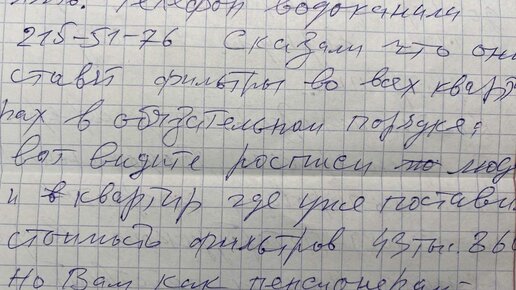 Телефон водоканала
215-51-76 Сказали что они
ставят фильтры во всех кварт
рах в обязательном порядке,
вот видите росписи люд
и квартир где уже постави
стоимость фильтров 43 тыс. 860
Но Вам как пенсионерам